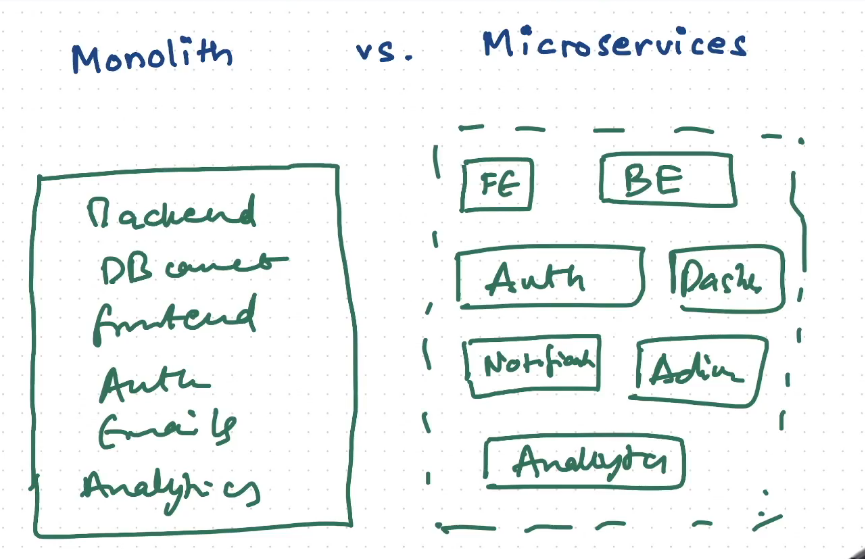 Monolith vs. Microservices
Backend
DB connect
frontend
Auth
Emails
Analytics
FE BE
Auth Dash
Notificat
Admin
Analytics